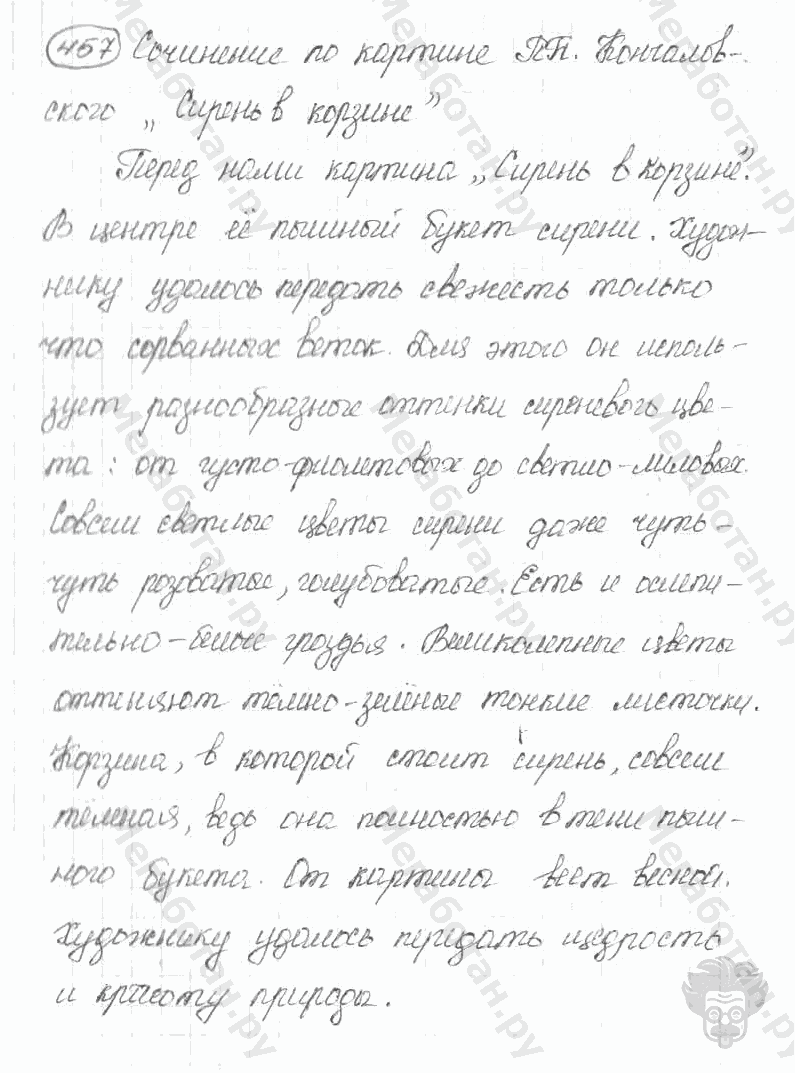 457 Сочинение по картине П.П. Кончалов-
ского „Сирень в корзине”
Перед нами картина „Сирень в корзине”.
В центре её пышный букет сирени. Худож-
нику удалось передать свежесть только
что сорванных веток. Для этого он исполь-
зует разнообразные оттенки сиреневого цве-
та: от густо-фиолетовых до светло-лиловых.
Совсем светлые цветы сирени даже чуть-
чуть розоватые, голубоватые. Есть и ослепи-
тельно-белые гроздья. Великолепные цветы
оттеняют тёмно-зелёные тонкие листочки.
Корзина, в которой стоит сирень, совсем
тёмная, ведь она полностью в тени пыш-
ного букета. От картины веет весной.
Художнику удалось передать щедрость
и красоту природы.
Мегаботан.ру